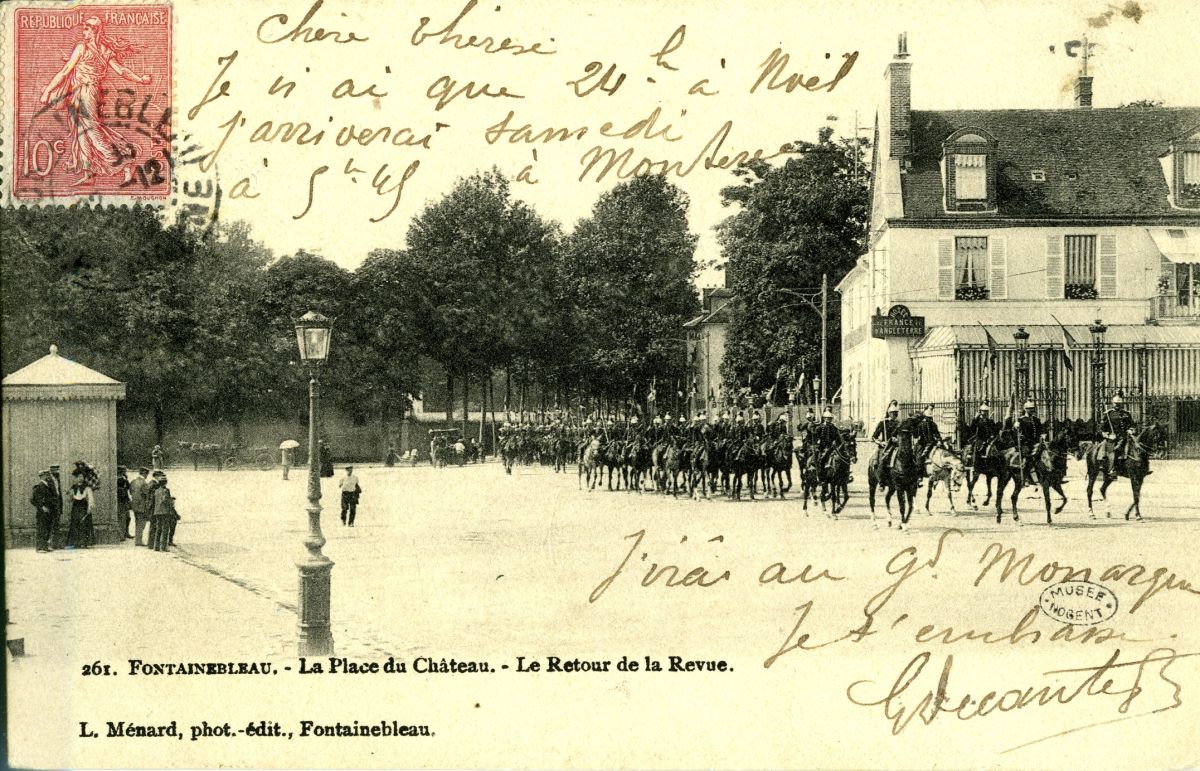 RÉPUBLIQUE FRANÇAISE
10c
E. MOUCHON
Chère Thérèse
Je n'ai que 24 h. à Noël
j'arriverai samedi
à 5 hr 45 à Montereau
HOTEL
DE FRANCE ET
D'ANGLETERRE
J'irai au Gd. Monarque
MUSÉE
NOGENT
Je t'embrasse.
261. FONTAINEBLEAU. - La Place du Château. - Le Retour de la Revue.
L. Ménard, phot.-édit., Fontainebleau.